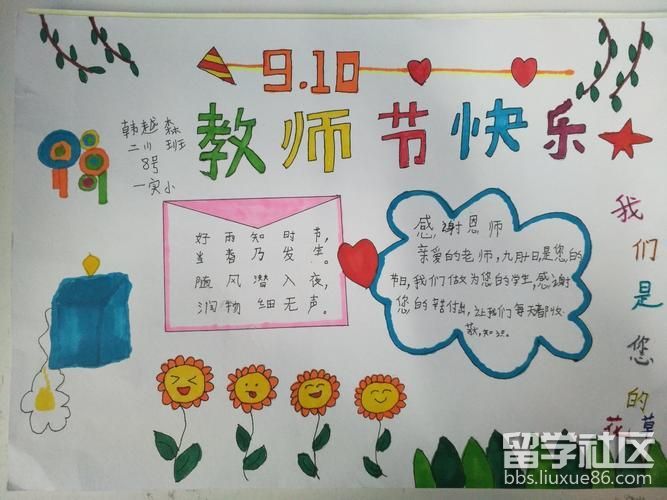 9.10
教师节快乐
韩越森
二川班
8号
一实小
好雨知时节,
当春乃发生。
随风潜入夜,
润物细无声。
感谢恩师
亲爱的老师,九月十日是您的
节日,我们做为您的学生,感谢
您的辛苦付出,让我们每天都收
获,知识。
我们是您的花草
留学社区
bbs.liuxue86.com